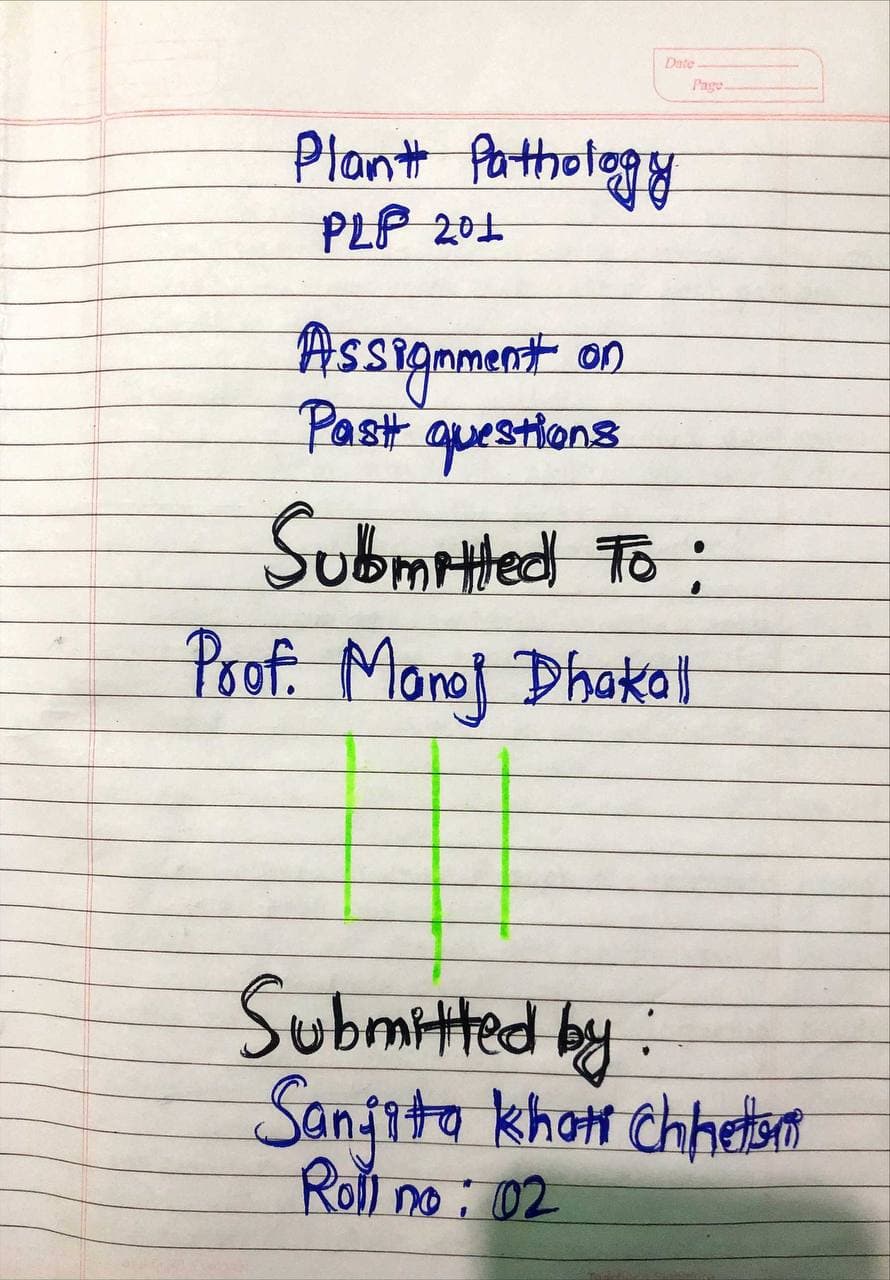 Date
Page
Plant Pathology
PLP 201
Assignment on
Past questions
Submitted To :
Prof. Manoj Dhakal
Submitted by :
Sanjita Khati Chhetri
Roll no : 02